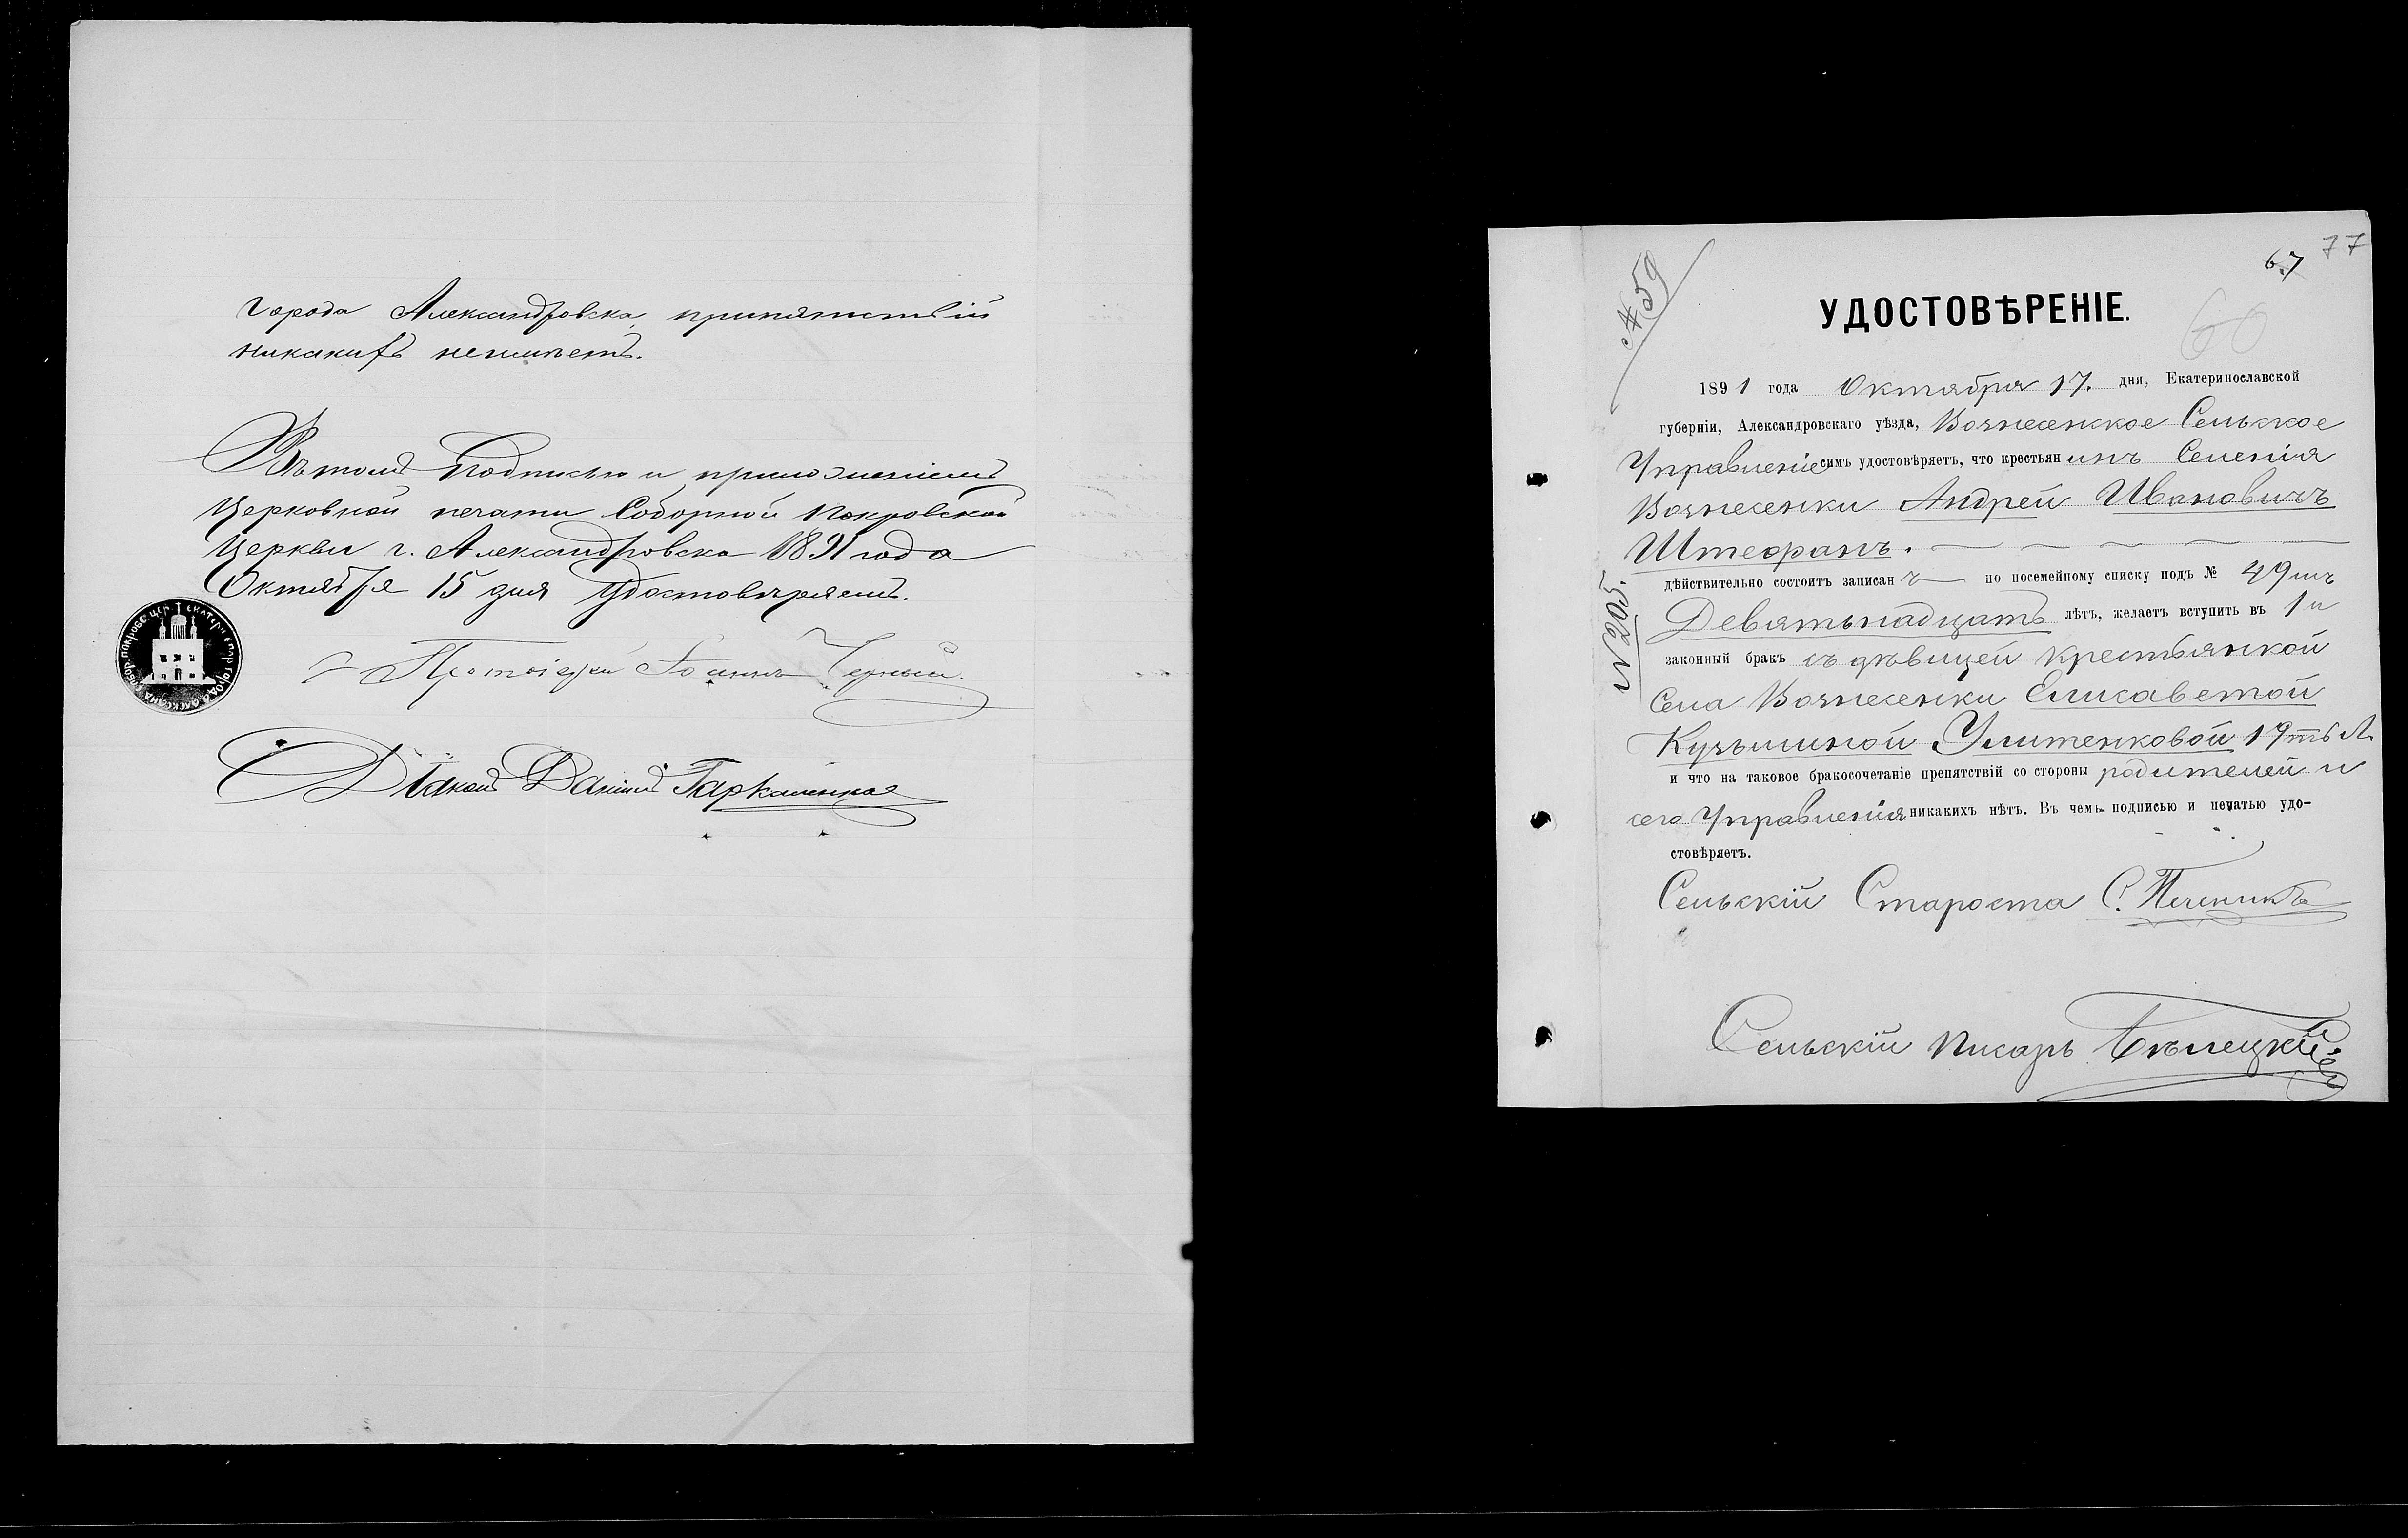 города Александровска, препятствій
никакихъ неимѣетъ.
Въ томъ подписью и приложеніемъ
Церковной печати Соборной Покровской
Церкви г. Александровска 1891 года
Октября 15 дня удостовѣряемъ.
Протоіерей Іоаннъ Черный.
Діаконъ Даніилъ
67 77
60
№ 59
УДОСТОВѢРЕНІЕ.
1891 года Октября 17. дня, Екатеринославской
губерніи, Александровскаго уѣзда, Вознесенское Сельское
Управленіе симъ удостовѣряетъ, что крестьянинъ Селенія
Вознесенки Андрей Ивановичъ
Штефанъ.
дѣйствительно состоитъ записанъ по посемейному списку подъ № 49
Девятьнадцать лѣтъ, желаетъ вступить въ 1й
законный бракъ съ дѣвицей крестьянкой
Села Вознесенки Елисаветой
Кузьминой Улитенковой 19ть Л.
и что на таковое бракосочетаніе препятствій со стороны родителей и
сего Управленія никакихъ нѣтъ. Въ чемъ подписью и печатью удо-
стовѣряетъ.
Сельскій Староста С. Печеникъ
Сельскій Писарь Бѣлецкій
№ 205.